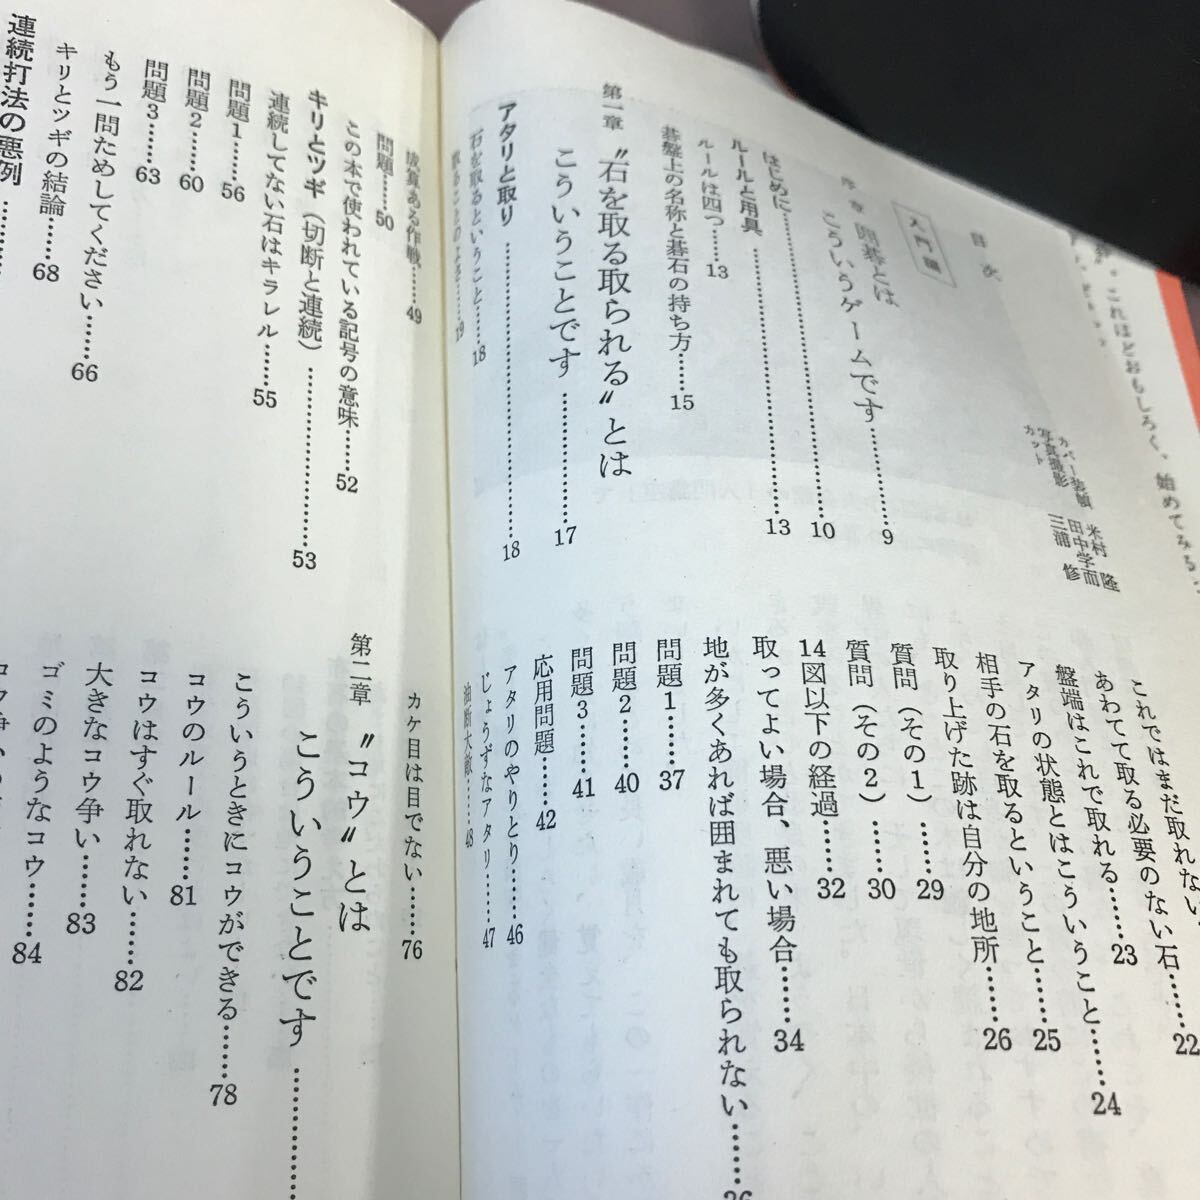 これほどおもしろく、始めてみる
カバー装幀 米村 隆
写真撮影 田中学而
カット 三浦 修
目次
入門編
序章 囲碁とは
こういうゲームです……9
はじめに……10
ルールと用具……13
ルールは四つ……13
碁盤上の名称と碁石の持ち方……15
第一章 〝石を取る取られる〟とは
こういうことです……17
アタリと取り……18
石を取るということ……18
取ることのよさ……19
これではまだ取れない
あわてて取る必要のない石……22
盤端はこれで取れる……23
アタリの状態とはこういうこと……24
相手の石を取るということ……25
取り上げた跡は自分の地所……26
質問(その1)……29
質問(その2)……30
14図以下の経過……32
取ってよい場合、悪い場合……34
地が多くあれば囲まれても取られない……36
問題1……37
問題2……40
問題3……41
応用問題……42
アタリのやりとり……46
じょうずなアタリ……47
油断大敵……48
成算ある作戦……49
問題……50
この本で使われている記号の意味……52
キリとツギ(切断と連続)……53
連続してない石はキラレル……55
問題1……56
問題2……60
問題3……63
もう一問ためしてください……66
キリとツギの結論……68
連続打法の悪例……
カケ目は目でない……76
第二章 〝コウ〟とは
こういうことです……
こういうときにコウができる……78
コウのルール……81
コウはすぐ取れない……82
大きなコウ争い……83
ゴミのようなコウ……84